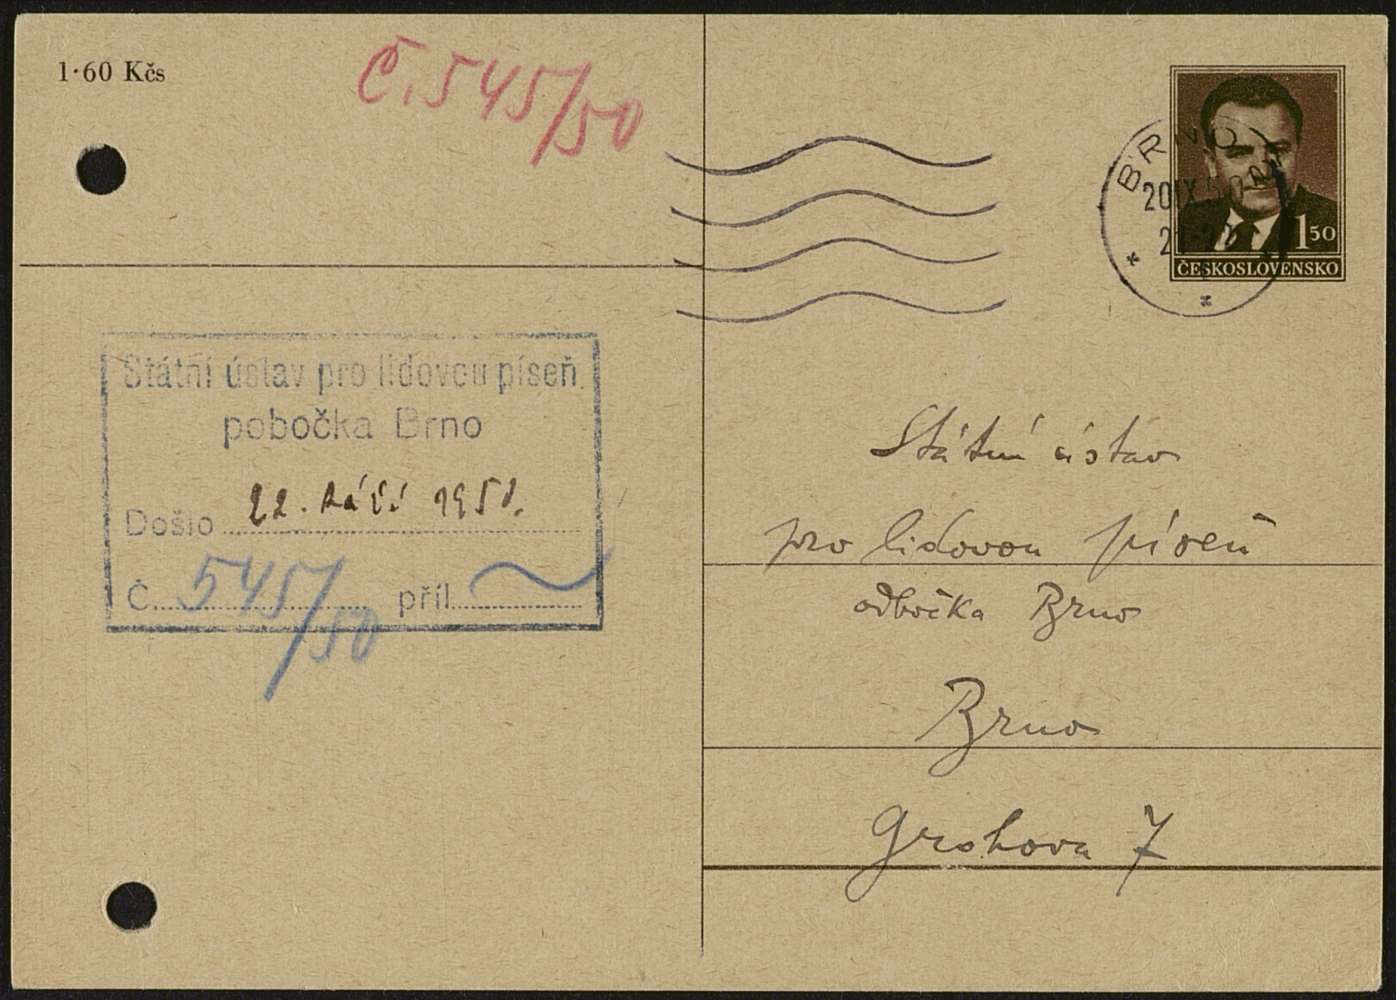 1·60 Kčs
Č. 545/50
BRNO
20.IX.50
1 50
ČESKOSLOVENSKO
Státní ústav pro lidovou píseň
pobočka Brno
Došlo 22. září 1950.
Č. 545/50 příl.
Státní ústav
pro lidovou píseň
odbočka Brno
Brno
Grohova 7